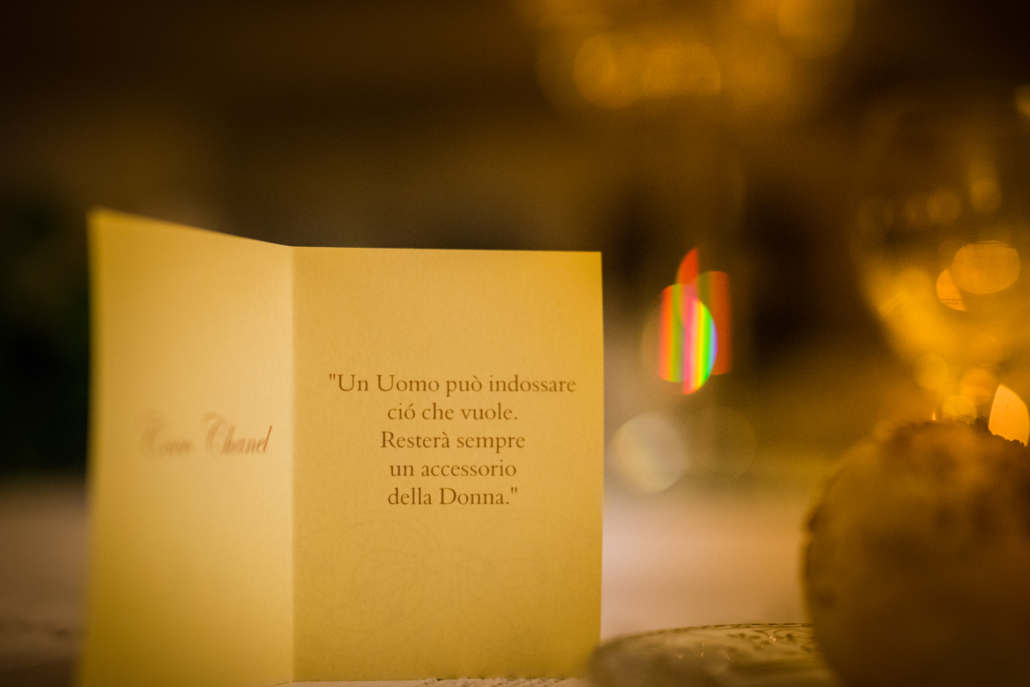 Coco Chanel
"Un Uomo può indossare
ció che vuole.
Resterà sempre
un accessorio
della Donna."